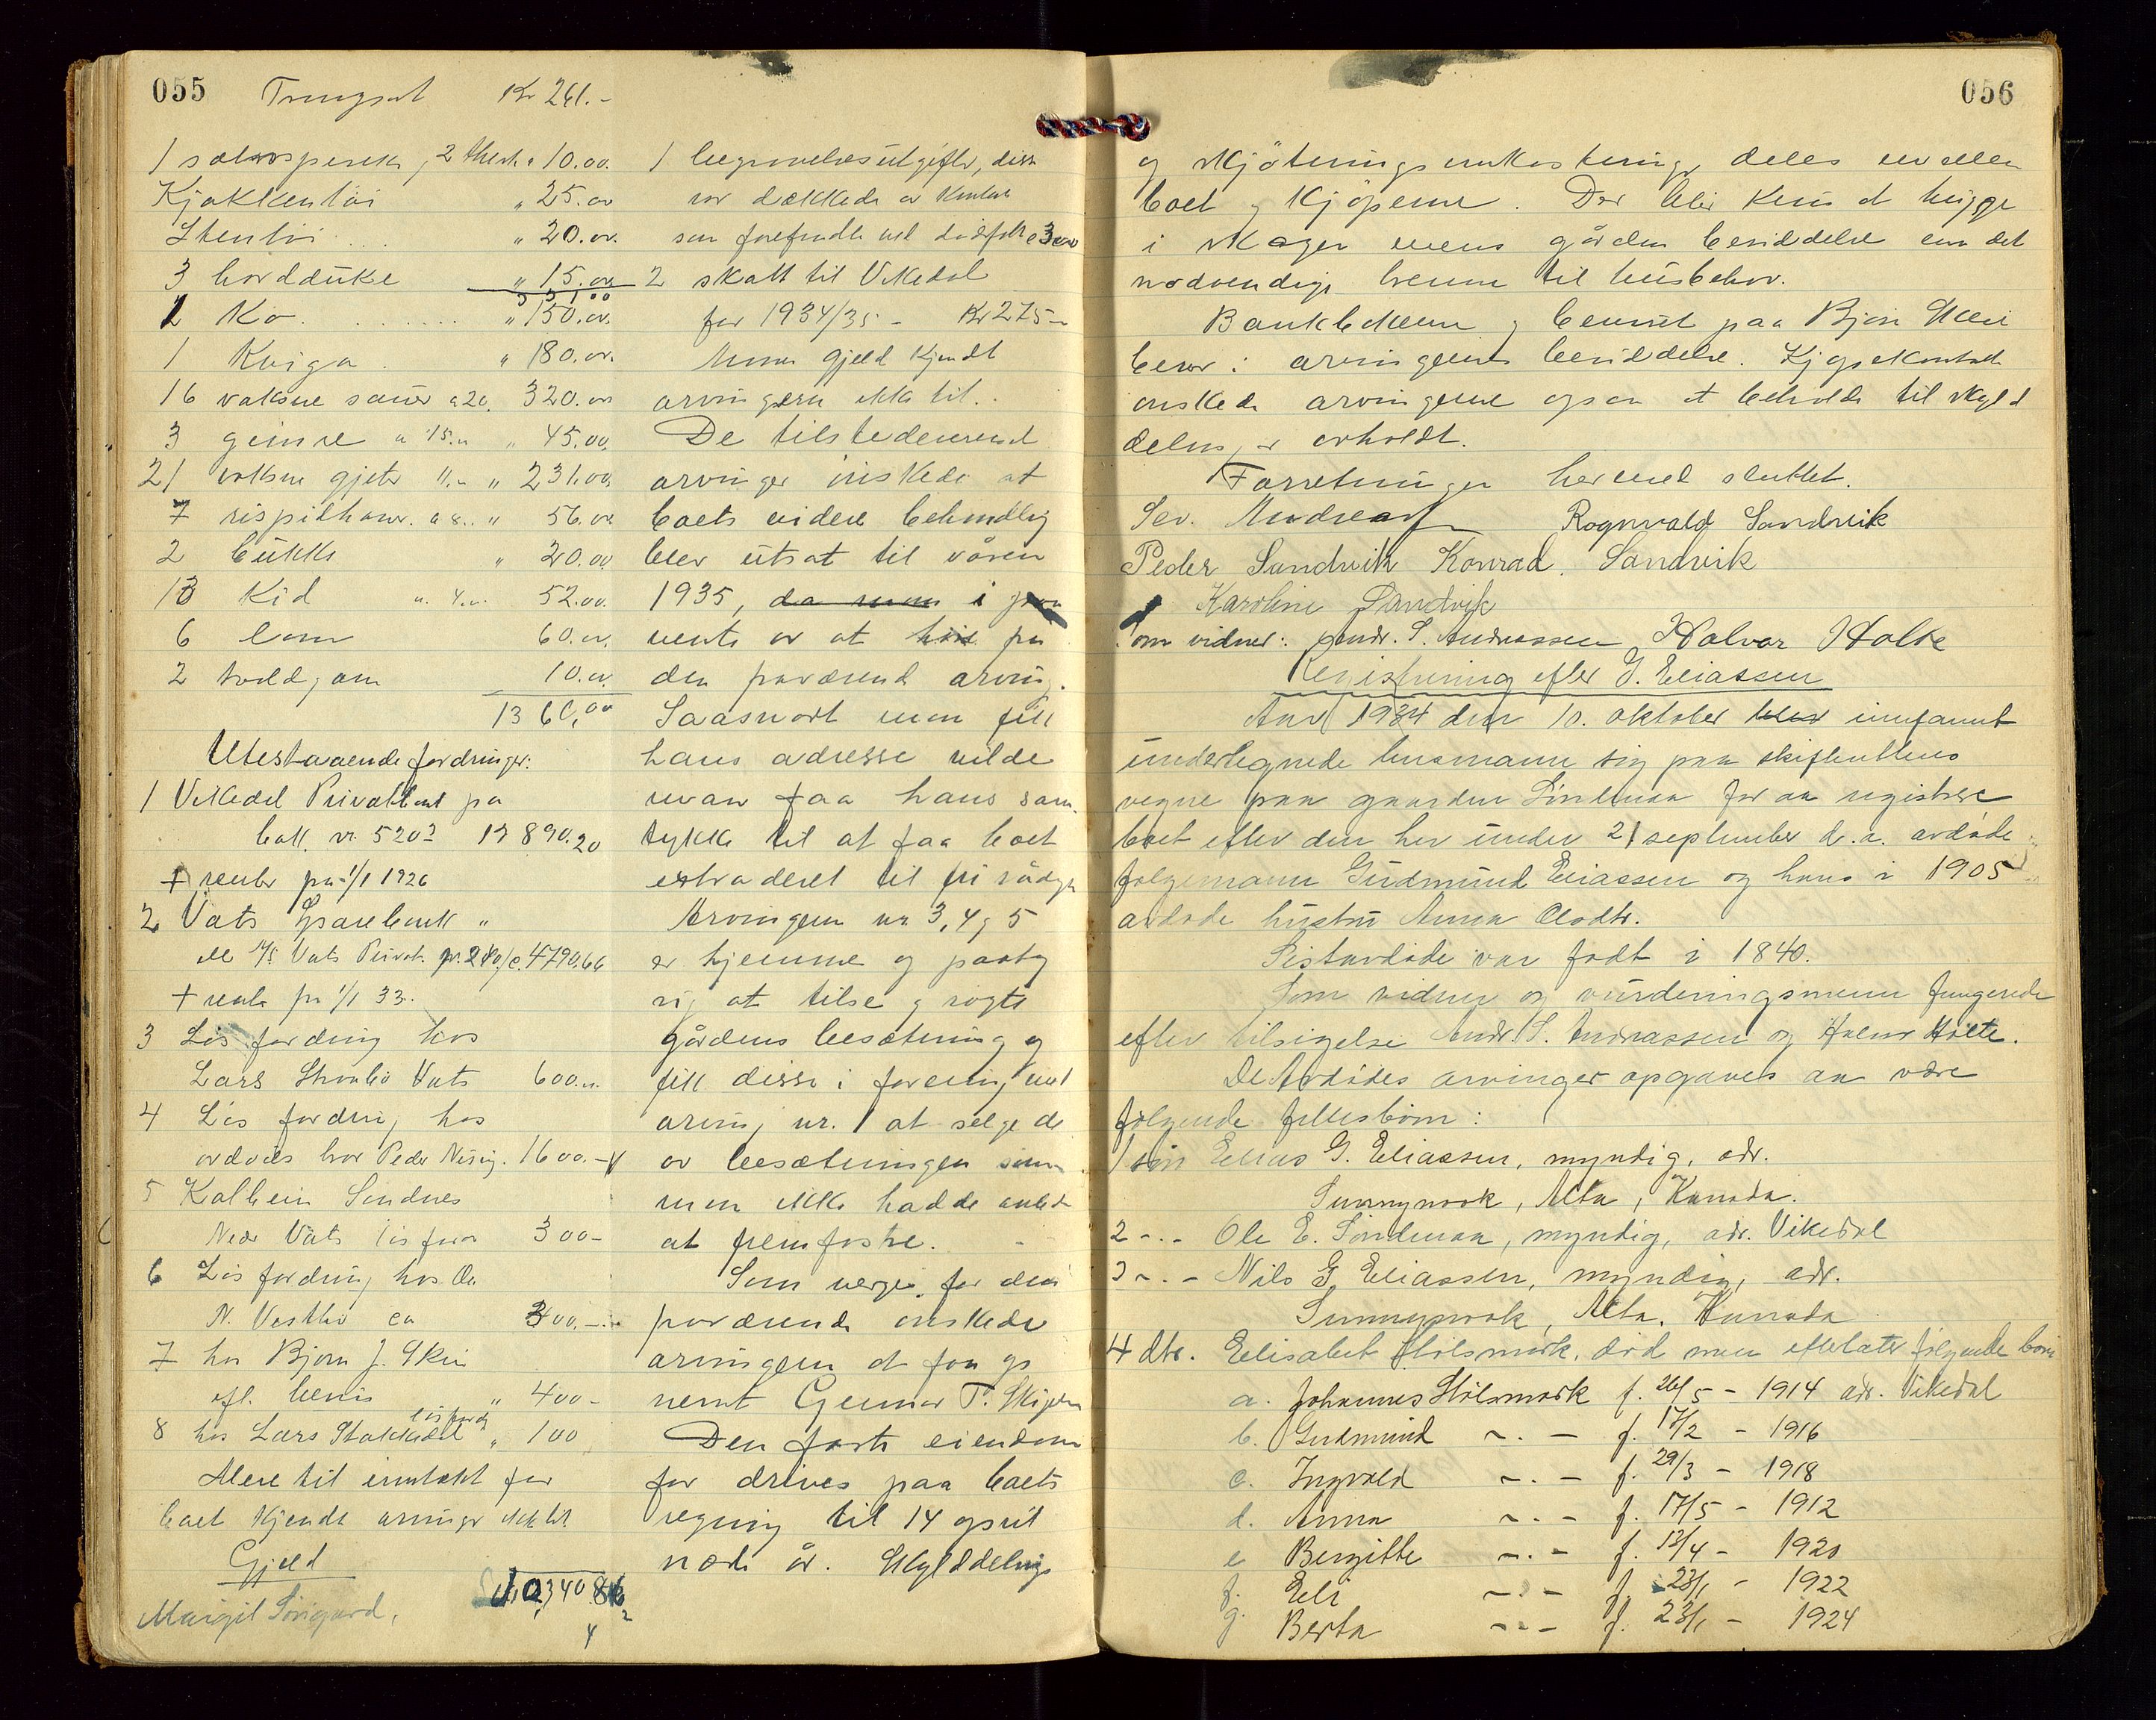 055
Kr 261.-
Kjøkkentøi " 25.00
Stentøi . . . " 20.00.
3 borddúke " 15.00
1 Ko . . . . . . . . " 150.00.
1 Kviga . " 180.00.
16 voksne sauer a 20. 320.00
3 gimre a 15.00 " 45.00.
21 voksne gjeter 11.00 " 231.00.
7 a 8.. " 56.00
2 búkke " 20.00
13 Kid a. 4.00. 52.00.
6 lam 60.00.
2 10.00.
1360,00
Utestaaende fordringer:
1 Vikedal Privatbank paa
bok nr. 520? 13 890.20
+ renter fra 1/1 1926
2 Vats Sparebank "
4790.66
+ rente fra 1/1 33.
3 Løs fordring hos
Lars Vats 600.00.
4 Løs fordring hos
avdødes bror Peder 1600.-
5 Kolbein Sendnes
Nedr Vats løs ford. 300-
6 Løs fordring hos Ole
N. Vestbø ca 300.-
7 hos Bjørn J. Skei
efl. bevis " 400-
løs fordr
8 hos Lars Stakkedal " 100
Mere til inntekt for
boet kjendte arvinger ikke til.
Gjeld
Margit Sørgard,
1 begravelsesutgifter, disse
var dækkede av kontante
som forefandtes ved dødsfallet 300
2 skatt til Vikedal
for 1934/35 - Kr 275-
Mere gjeld kjendte
arvingerne ikke til.
De tilstedeværende
arvinger ønskede at
boets videre behandling
blev útsat til våren
1935, da man i
vente av at fra
den fraværende arving.
Saasnart man fikk
hans adresse vilde
man faa hans sam-
tykke til at faa boet
extraderet til fri rådighet
Arvingerne nr 3, 4 og 5
er hjemme og paatog
sig at tilse og røgte
gårdens besætning og
fikk disse i forening med
arving nr. 1 at selge de
av besætningen som
man ikke hadde anledn.
at fremfostre.
Som verge for den
fraværende ønskede
arvingerne at faa op
nevnt Gunnar T.
Den faste eiendom
for drives paa boets
regning til 14 april
næste år. Skylddelings
056
og skjøtningsomkostninger deles mellem
boet og kjøperne. Der blir kun at hugge
i skogen mens gården besiddelse enn det
nødvendige brenne til húsbehov.
Bankbøkerne og beviset paa Bjørn Skei
beror i arvingernes besiddelse. Kjøpekontrakt
ønskede arvingerne ogsaa at beholde til skyld
deling er avholdt.
Forretningen hermed sluttet.
Sev. Andreassen Rognvald Sandvik
Peder Sandvik Konrad. Sandvik
Karoline Sandvik
Som vidner: Andr. S. Andreassen Halvar Holte
Registrering efter G. Eliassen
Aar 1934 den 10. oktober blev innfannt
undertegnede lensmann sig paa skifterettens
vegne paa gaarden Søndenaa for aa registrere
boet efter den her únder 21 september d.a. avdøde
følgemann Gúdmúnd Eliassen og hans i 1905
avdøde hústrú Anna Olsdtr.
Sistavdøde var født i 1840.
Som vidner og vúrderingsmenn fungerede
efter tilsigelse Andr. S. Andreassen og Halvar Holte.
De Avdødes arvinger opgaves aa være
følgende fellesbørn:
1 søn Elias G. Eliassen, myndig, adr.
Sunnynook, Alta, Kanada.
2 - . - Ole E. Søndenaa, myndig, adr. Vikedal
3 - . - Nils G. Eliassen, myndig, adr.
Sunnynook, Alta. Kanada
4 dtr. Elisabet Stølsmark, død men efterlater følgende barn
a. Johannes Stølsmark f. 26/5 - 1914 adr. Vikedal
b. Gudmúnd - . - f. 17/2 - 1916
c. Ingvald - . - f. 29/3 - 1918
d. Anna - . - f. 17/5 - 1912
e Bergitte - . - f. 13/4 - 1920
f. Eli - . - f. 23/1 - 1922
g. Berta - . - f. 23/1 - 1924